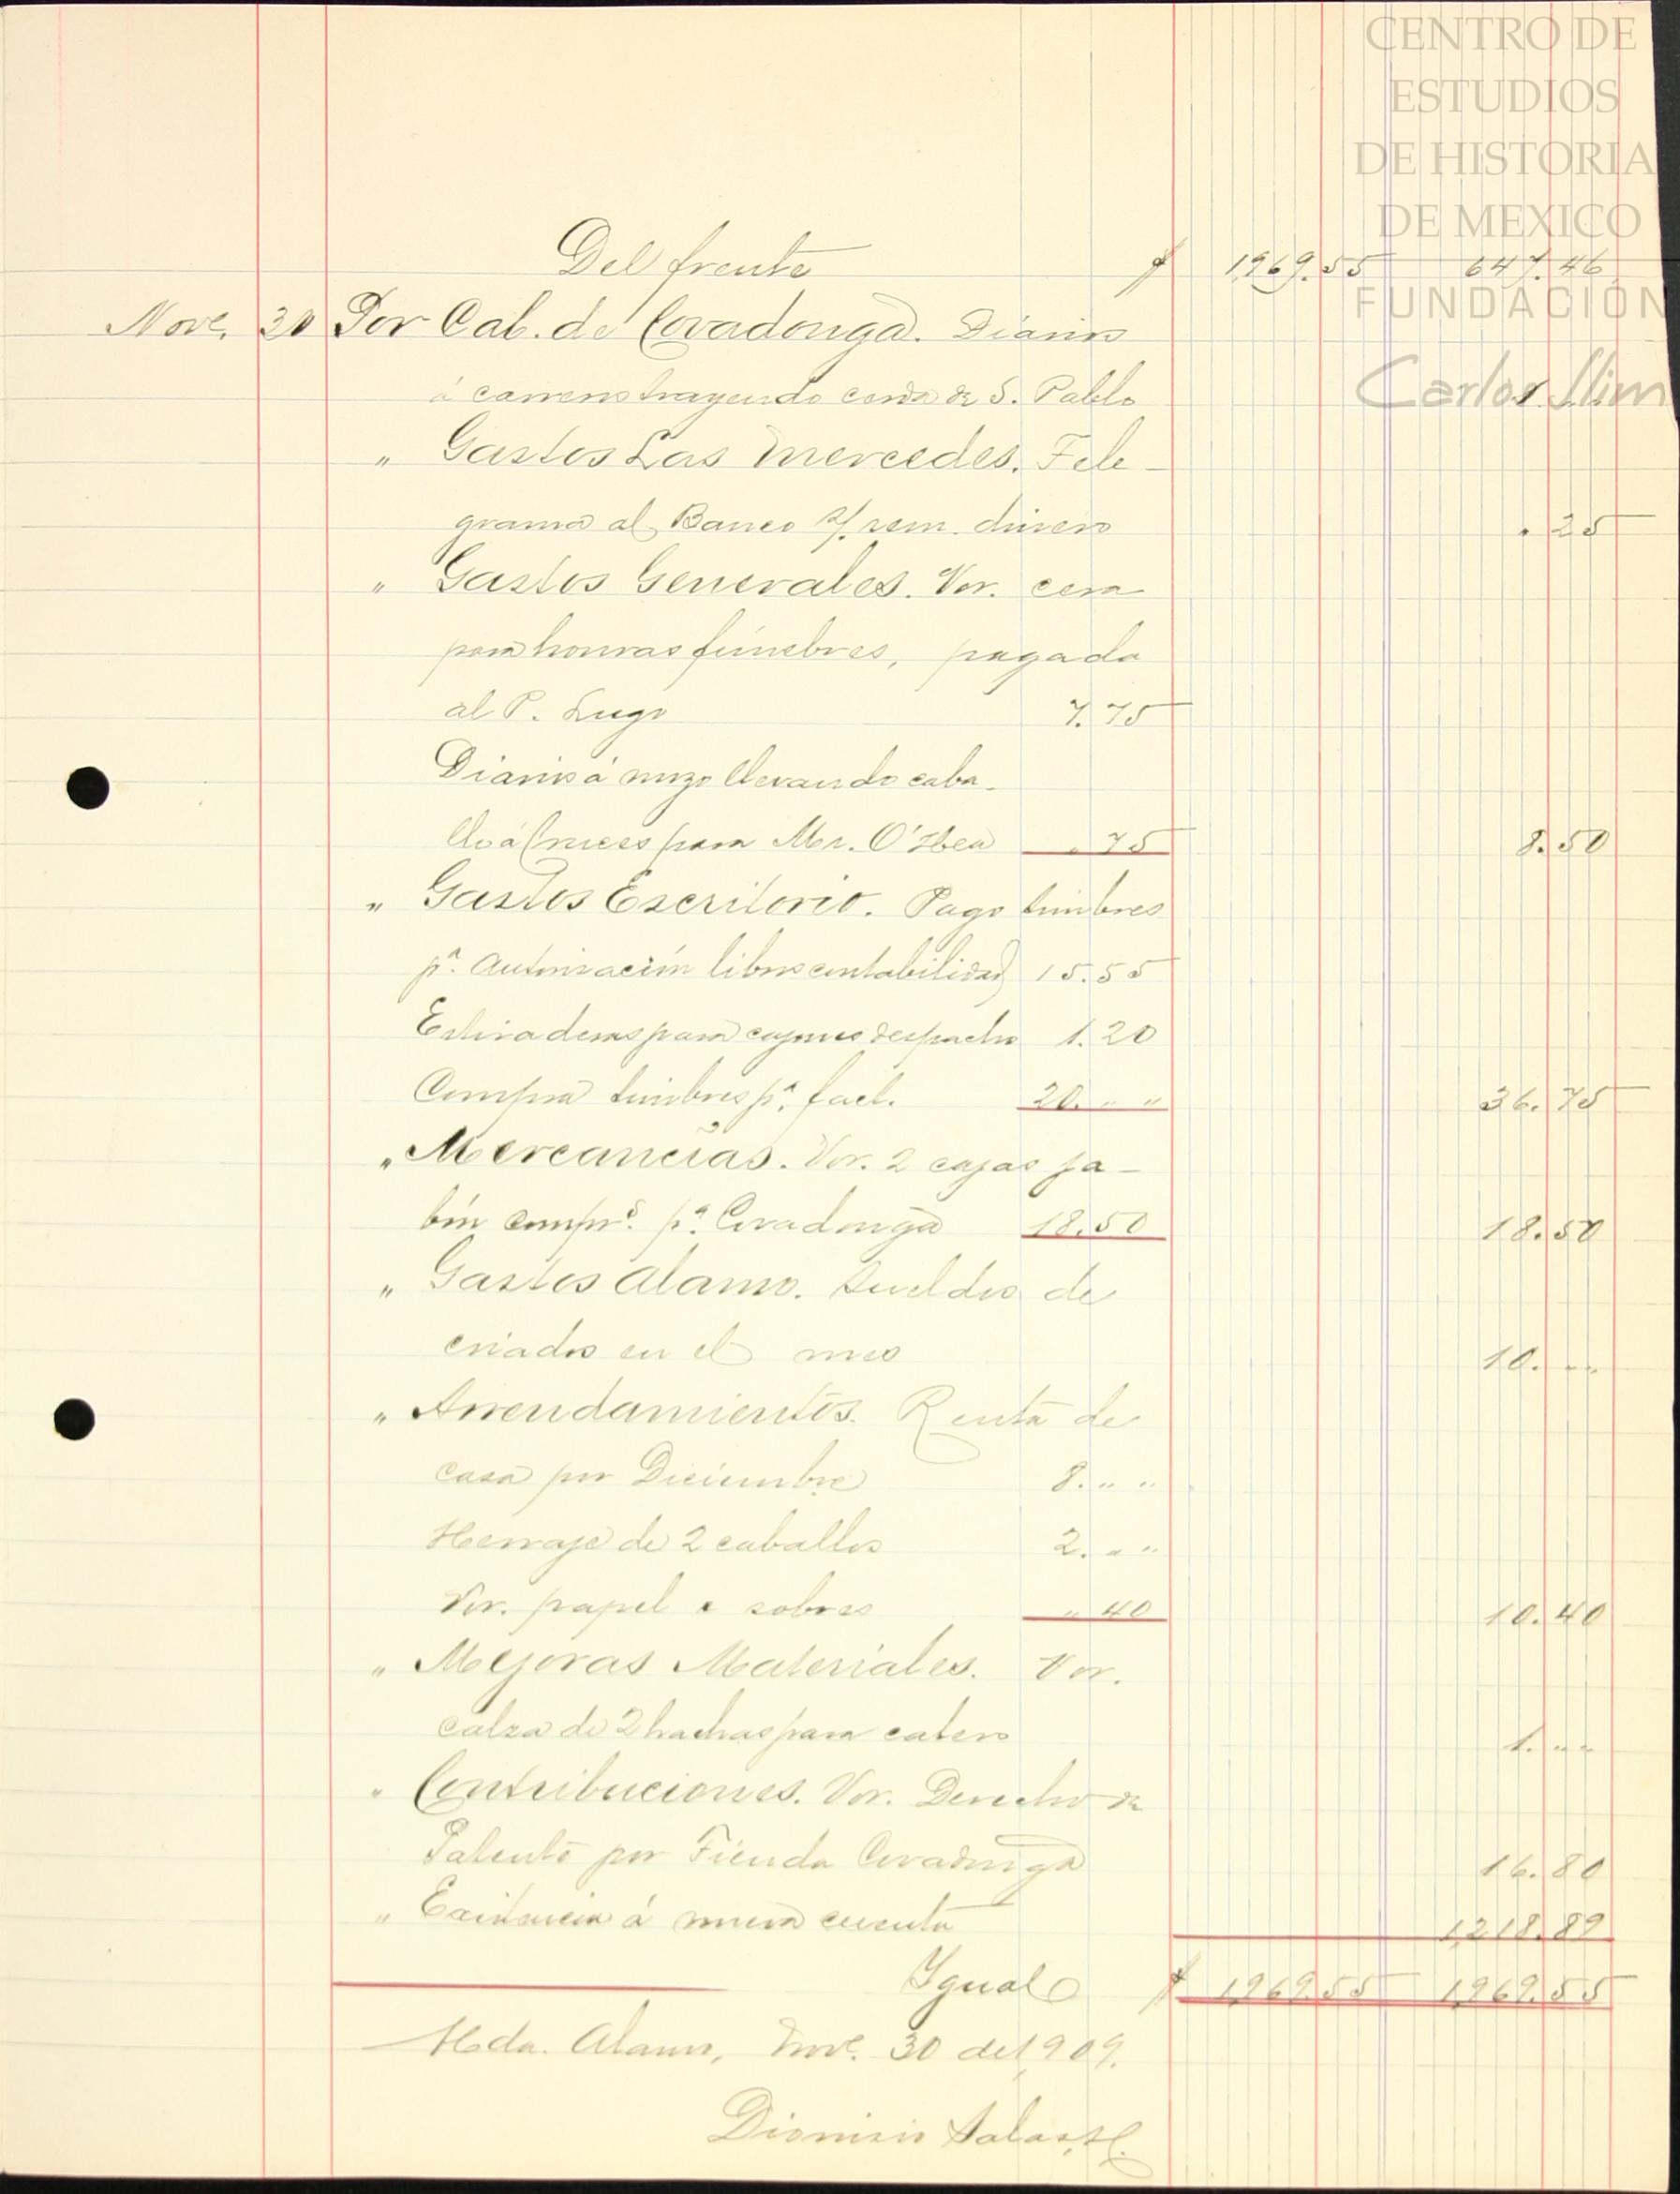 CENTRO DE
ESTUDIOS
DE HISTORIA
DE MEXICO
FUNDACIÓN
Carlos Slim
Del frente $ 1,969.55 647.46
Nove. 30 Por Cab. de Covadonga. Diarios
á carrero trayendo de S. Pablo 1. " "
" Gastos Las Mercedes. Tele-
grama al Banco s/. rem. dinero . 25
" Gastos Generales. Vor. cera
para honras fúnebres, pagada
al P. Lugo 7.75
Diarios á mozo llevando caba-
llo á Cruces para Mr. O'Hea . 75 8.50
" Gastos Escritorio. Pago timbres
pa. autorización libros contabilidad 15.55
Estiraderas para cajones despacho 1.20
Compra timbres pa. fact. 20. " " 36.75
" Mercancías. Vor. 2 cajas ja-
bón compds. pa. Covadonga 18.50 18.50
" Gastos Alamo. Sueldos de
criados en el mes 10. " "
" Arrendamientos. Renta de
casa por Diciembre 8. " "
Herraje de 2 caballos 2. " "
Vor. papel e sobres " 40 10.40
" Mejoras Materiales. Vor.
calza de 2 hachas para 1. " "
" Contribuciones. Vor. Derecho de
Patente por Tienda Covadonga 16.80
" Existencia á nueva cuenta 1,218.89
Igual $ 1,969.55 1,969.55
Hda. Alamo, Nove. 30 de 1,909.
Dionisio Salas